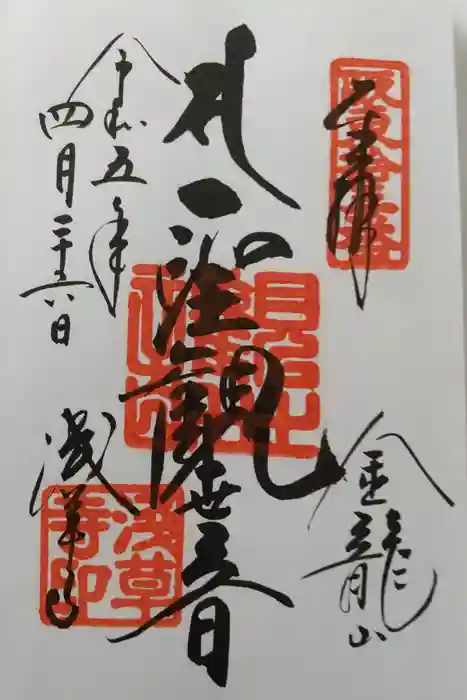 坂東拾三番
奉拝
金龍山
聖観世音
令和五年
四月二十六日
浅草寺
浅草寺印